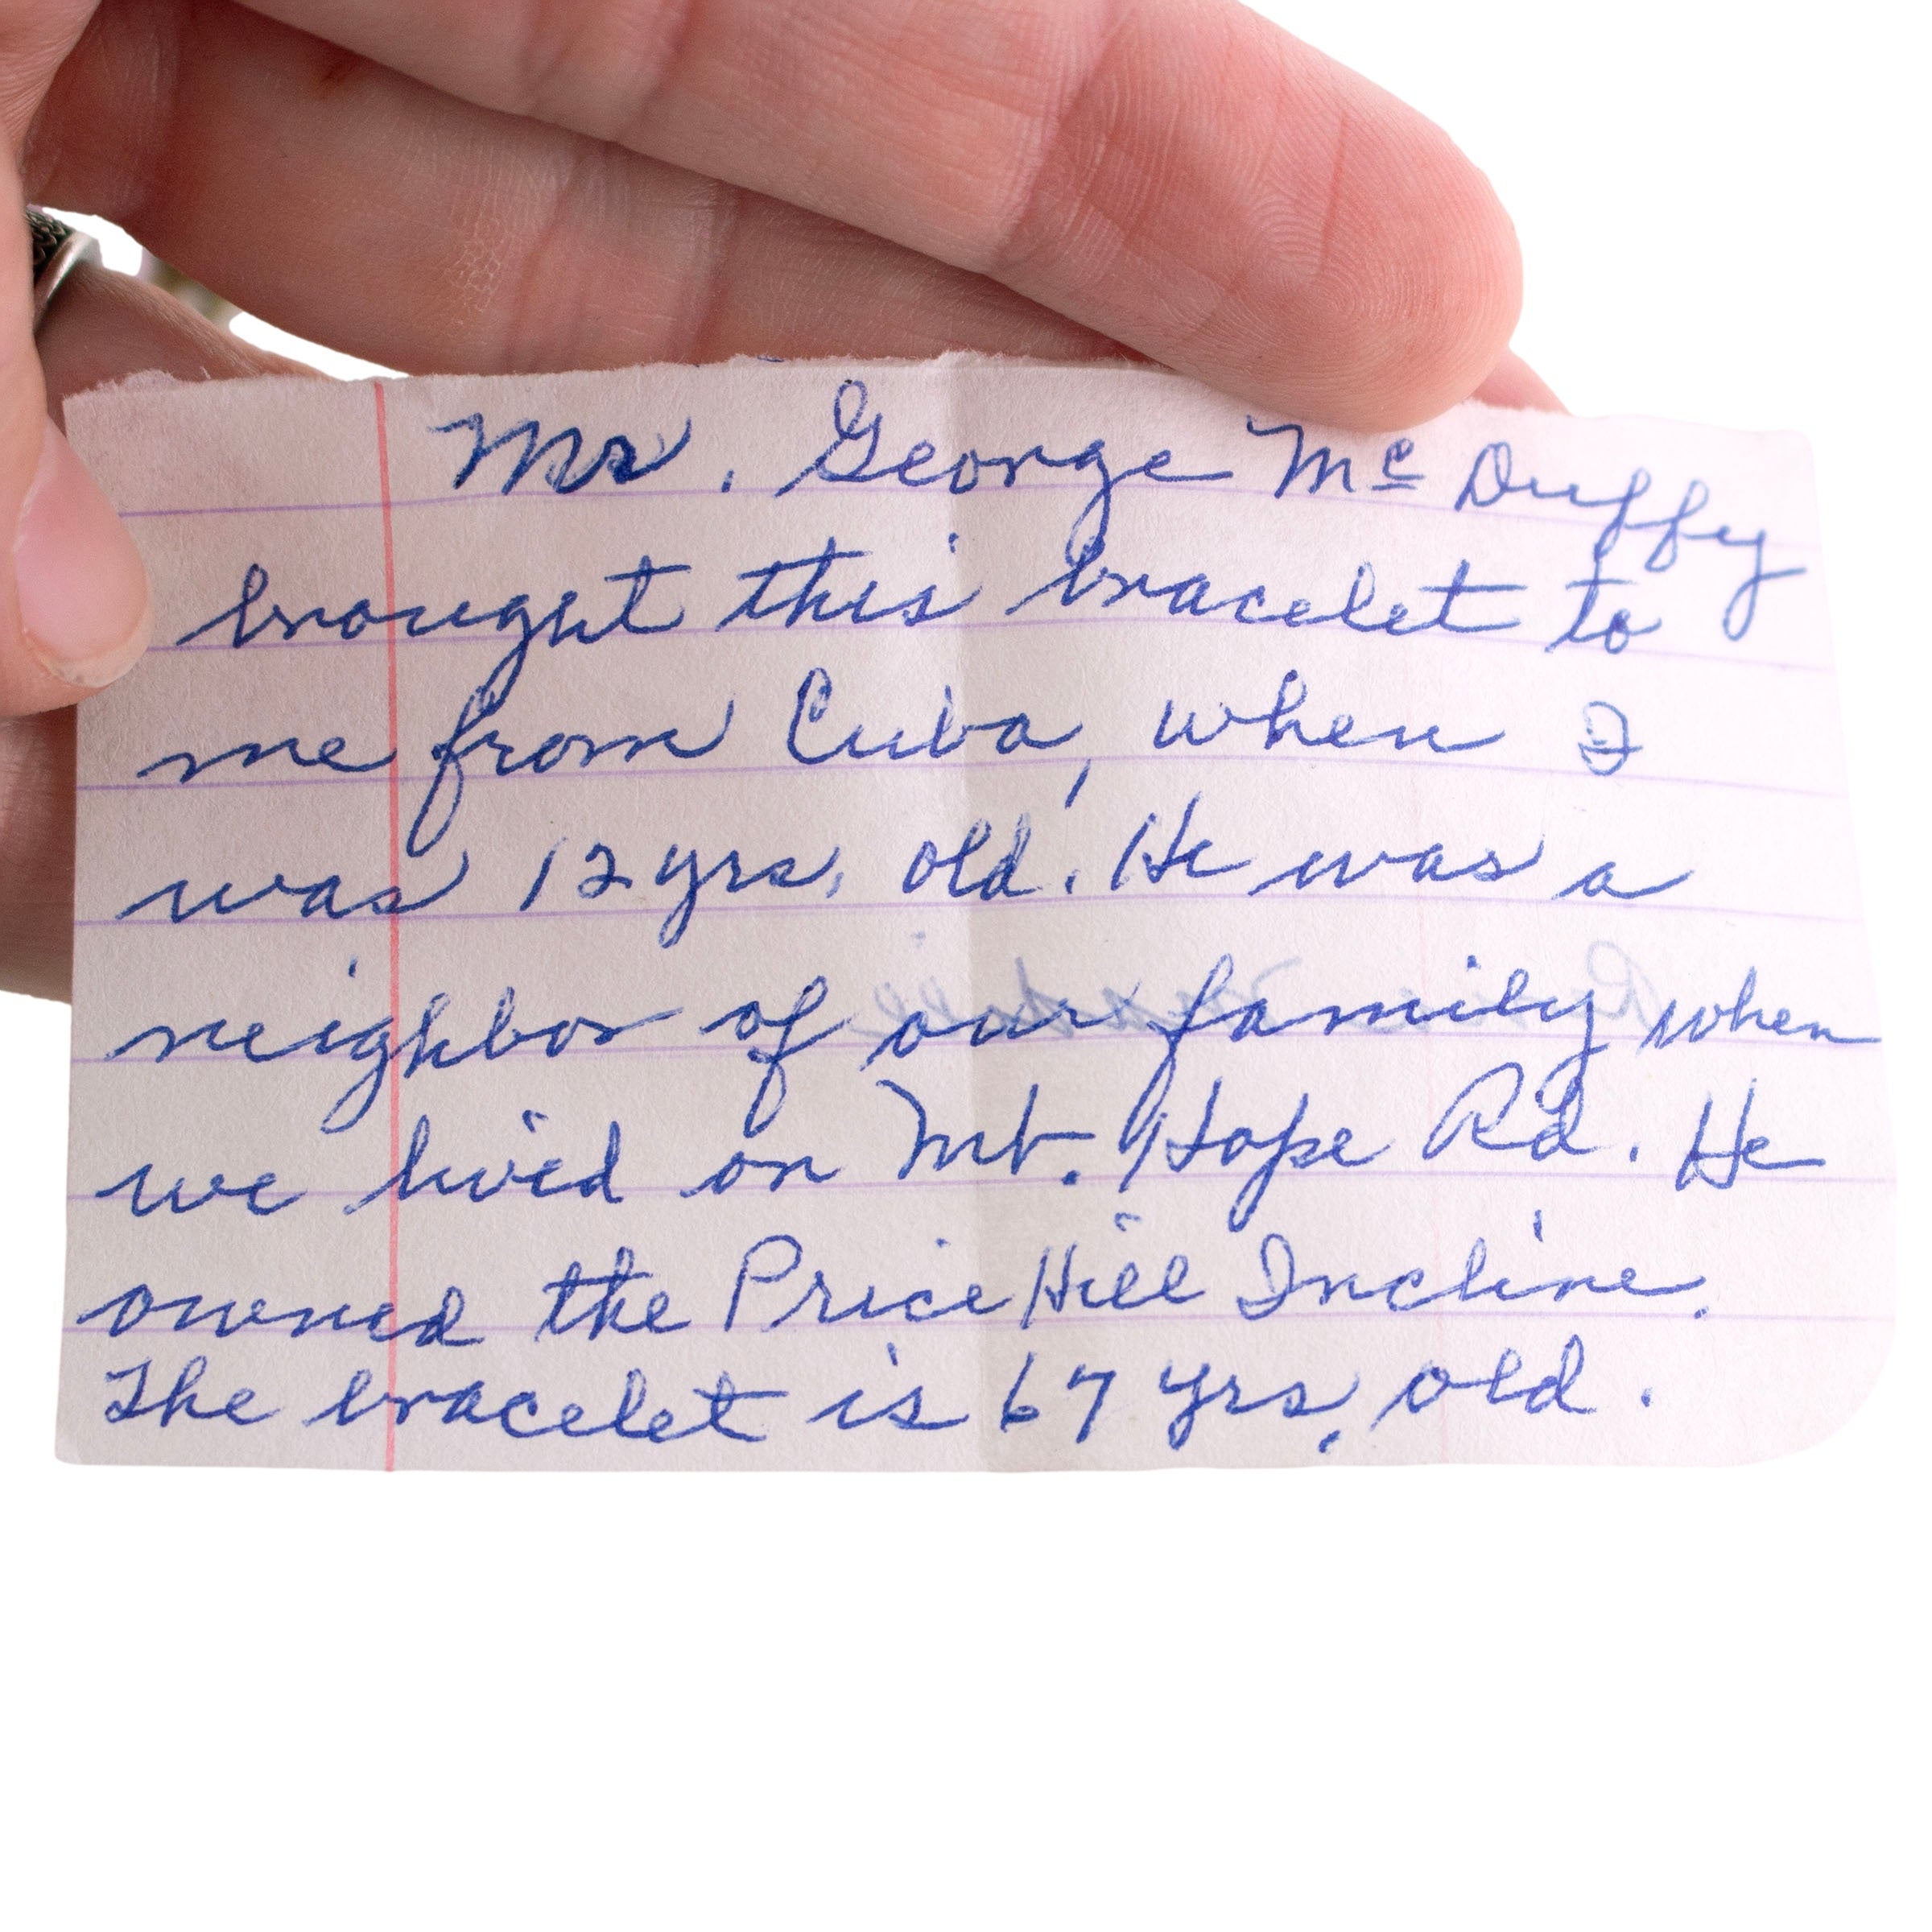 Mr. George Mc Duffy
brought this bracelet to
me from Cuba, when I
was 12 yrs. old. He was a
neighbor of our family when
we lived on Mt. Hope Rd. He
owned the Price Hill Incline.
The bracelet is 67 yrs. old.